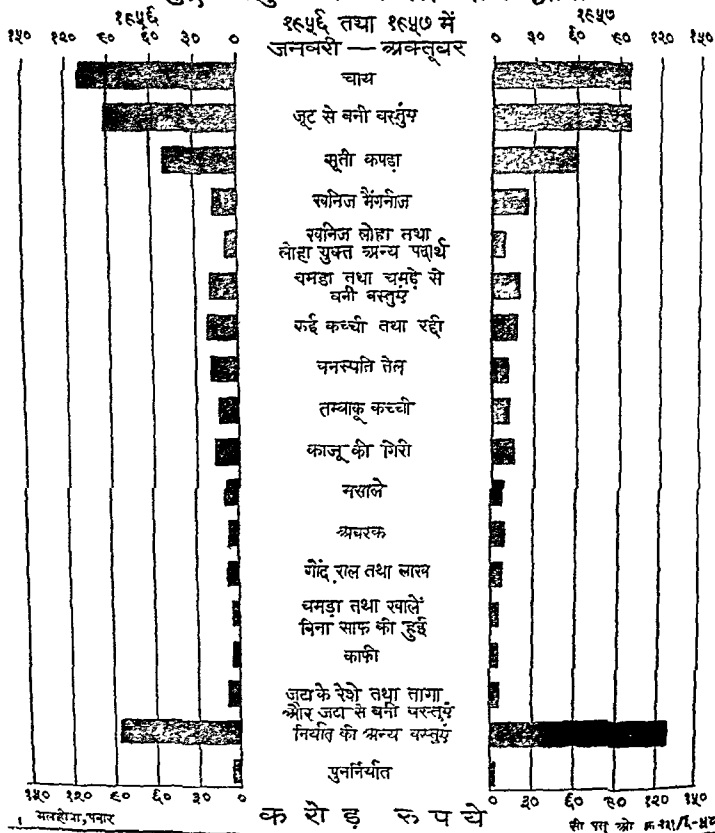 १९५६ १९५६ तथा १९५७ में १९५७
१५० १२० ९० ६० ३० ० जनवरी — अक्तूबर ० ३० ६० ९० १२० १५०
चाय
जूट से बनी वस्तुएं
सूती कपड़ा
खनिज मैंगनीज
खनिज लोहा तथा
लोहा युक्त अन्य पदार्थ
चमड़ा तथा चमड़े से
बनी वस्तुएं
रुई कच्ची तथा रद्दी
वनस्पति तेल
तम्बाकू कच्ची
काजू की गिरी
मसाले
अबरक
गोंद, राल तथा लाख
चमड़ा तथा खालें
बिना साफ की हुई
काफी
जटा के रेशे तथा तागा,
और जटा से बनी वस्तुएं
निर्यात की अन्य वस्तुएं
पुनर्निर्यात
१५० १२० ९० ६० ३० ० ० ३० ६० ९० १२० १५०
करोड़ रुपये